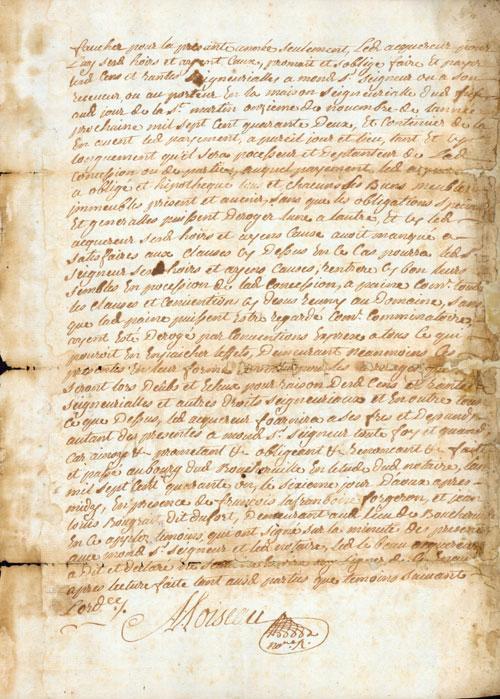 faucher pour la presente année seulement, Led acquereur pour
Luy sesd hoirs et ayent Cause, promait et s'oblige faire Et payer
Lesd Cens et rantes Seigneuriales a mond St. Seigneur ou a son
receveur, ou au porteur En la maison Seigneuriale dud fief
aud jour de la St. martin onzieme de novembre de lannée
prochaine mil sept Cent quarante deux, et Continuer de la
En avent led payement, a pareil jour et lieu, tant Et sy
longuement qu'il sera possesseur et detanteur de Lad
Concession ou de partie, auquel payement led
a obligé et hipotheque tous et chacuns ses Biens meubles
immeubles présent et avenir, sans que les obligations
Et generalles puissent deroger l'une a lautre, Et sy led
acquereur sesd hoirs et ayens Cause avoit manqué a
satisfaires aux Clauses Cy dessus En ce Cas pourra led St.
Seigneur sesd hoirs et ayens Causes, rentrer sy bon leurs
semblés En possession de lad Concession, a paine
les clauses et Convention Cy desus reuny au domaine, sans
que lad paine puissent Estre regardé Comminatoire
ayent Esté derogé par Conventions Expres a tous ce qui
pouroit En Empaicher leffets, demeurant neanmoins Ces
presentes En leur forme
seront lors deubs et Echus pour raison desd Cens et rantes
seigneurialles et autres Droits seigneuriaux et En outre tous
ce que Dessus, led acquereur fournira a ses fres et depans
autant des presentes a mond St. Seigneur toute foy et quand
Car ainsy &c prometant &c obligeant &c renoncant &c fait
et passé au bourg dud Boucherville En letude dud notaire, lan
mil sept Cent quarante un, le sixieme jour Daoux apres
midy, En presence de françois lafranboise forgeron, et jean
louis Bougret dit dufort, demeurant aud lieu de Boucherville
En ce appelez temoins, qui ont signé sur la minute des presente
aux mond St. Seigneur et led notaire, led le beau acquereur
a dit et declaré ne savoir signer de ce
apres lecture faite tant ausd parties que temoins suivant
Lordce
A Loiseau
nore R.